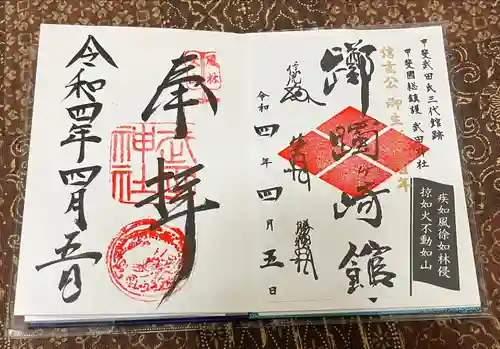 甲斐武田氏三代館跡
甲斐國総鎮護 武田神社
疾如風徐如林侵
掠如火不動如山
信玄公 御生
年
躑躅ヶ崎館
信虎
信玄
勝頼
令和四年四月五日
奉拝
風林
武田神社
令和四年四月五日